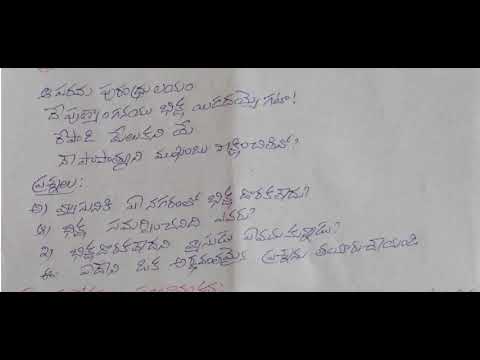 ఆ పరమ పురంధ్రులయం
దే పుణ్యాంగనయు భిక్ష యిడదయ్యె గటా!
రేపాడి మేలుకని యే
నా పాపాత్ముని ముఖంబు వీక్షించితినో?
ప్రశ్నలు:
అ) వ్యాసునికి ఏ నగరంలో భిక్ష దొరకలేదు?
ఆ) భిక్ష సమర్పించనిది ఎవరు?
ఇ) భిక్షదొరకలేదని వ్యాసుడు ఏమనుకున్నాడు?
ఈ) ఏదేని ఒక అర్థవంతమైన ప్రశ్నను తయారుచేయండి